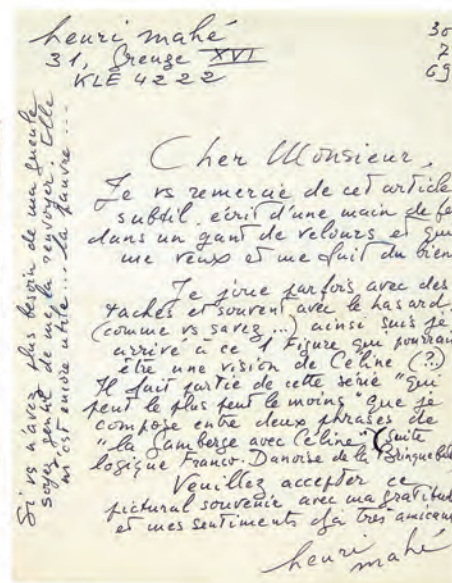 henri mahé
31, Greuze XVI
KLE 4222
30
7
69
Cher Monsieur,
Je vs remercie de cet article
subtil, écrit d'une main de fe
dans un gant de velours et que
me veux et me fait du bien
Je joue parfois avec des
taches et souvent avec le hasard
(comme vs savez...) ainsi suis je
arrivé à ce 1 Figure qui pourrai
être une vision de Céline (?)
Il fait partie de cette série "qui
peut le plus peut le moins" que je
compose entre deux phrases de
"la Gamberge avec Céline" (suite
logique Franco-Danoise de la Bringueba
Veuillez accepter ce
pictural souvenir avec ma gratitud
et mes sentiments dja très amicau
henri mahé
Si vs n'avez plus besoin de ma gueule
soyez gentil de me la renvoyer. Elle
m'est encore utile... la pauvre...